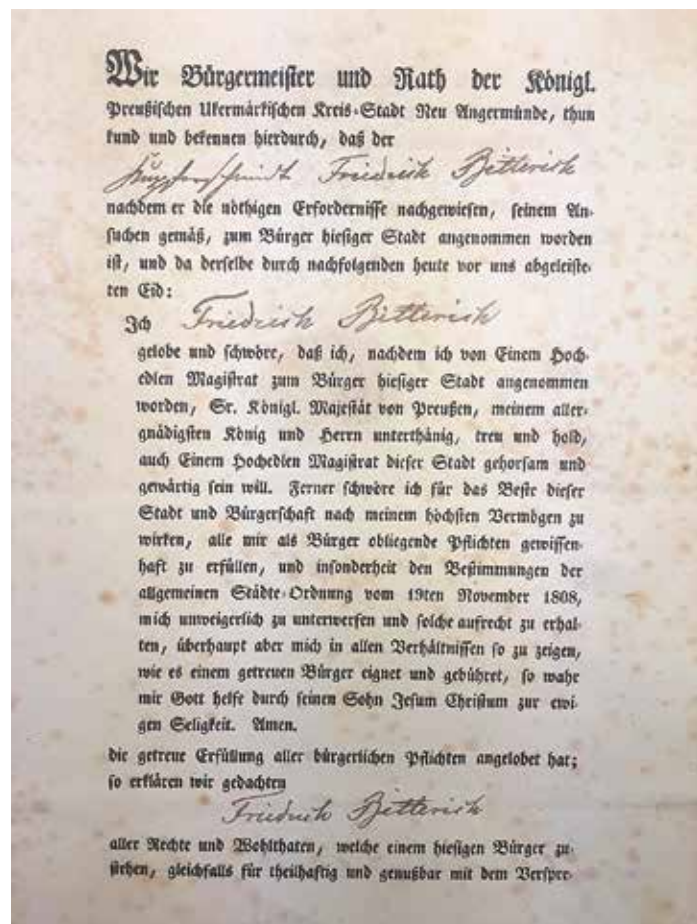 Wir Bürgermeister und Rath der Königl.
Preußischen Ukermärkischen Kreis-Stadt Neu Angermünde, thun
kund und bekennen hierdurch, daß der
Kupferschmidt Friedrich Bitterich
nachdem er die nöthigen Erfordernisse nachgewiesen, seinem An-
suchen gemäß, zum Bürger hiesiger Stadt angenommen worden
ist, und da derselbe durch nachfolgenden heute vor uns abgeleiste-
ten Eid:
Ich Friedrich Bitterich
gelobe und schwöre, daß ich, nachdem ich von Einem Hoch-
edlen Magistrat zum Bürger hiesiger Stadt angenommen
worden, Sr. Königl. Majestät von Preußen, meinem aller-
gnädigsten König und Herrn unterthänig, treu und hold,
auch Einem Hochedlen Magistrat dieser Stadt gehorsam und
gewärtig sein will. Ferner schwöre ich für das Beste dieser
Stadt und Bürgerschaft nach meinem höchsten Vermögen zu
wirken, alle mir als Bürger obliegende Pflichten gewissen-
haft zu erfüllen, und insonderheit den Bestimmungen der
allgemeinen Städte-Ordnung vom 19ten November 1808,
mich unweigerlich zu unterwerfen und solche aufrecht zu erhal-
ten, überhaupt aber mich in allen Verhältnissen so zu zeigen,
wie es einem getreuen Bürger eignet und gebühret, so wahr
mir Gott helfe durch seinen Sohn Jesum Christum zur ewi-
gen Seligkeit. Amen.
die getreue Erfüllung aller bürgerlichen Pflichten angelobet hat;
so erklären wir gedachten
Friedrich Bitterich
aller Rechte und Wohlthaten, welche einem hiesigen Bürger zu-
stehen, gleichfalls für theilhaftig und genußbar mit dem Verspre-